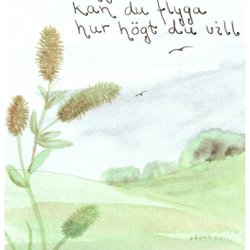 kan du flyga
hur högt du vill